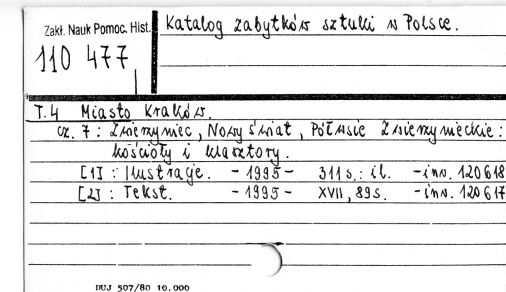 Zakł. Nauk Pomoc. Hist.
Katalog zabytków sztuki w Polsce.
110 477
T.4 Miasto Kraków.
cz. 7 : Zwierzyniec, Nowy Świat, Półwsie Zwierzynieckie :
kościoły i klasztory.
[1] : Ilustracje. - 1995 - 311 s. : il. - inw. 120618
[2] : Tekst. - 1995 - XVII, 89 s. - inw. 120617
DUJ 507/80 10.000